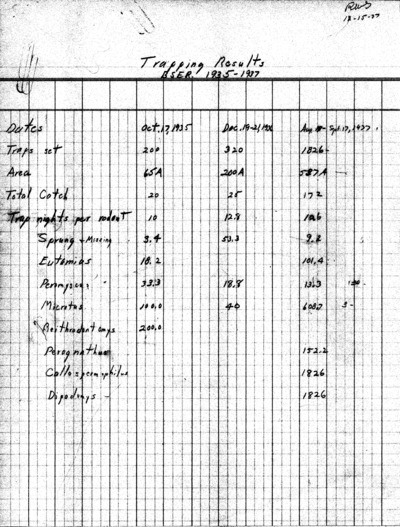 RWS
12-15-37
Trapping Results
B.S.E.R. 1935-1937
Dates Oct. 17, 1935 Dec. 19-21, 1936 Aug. Sept. 17, 1937
Traps set 200 320 1826
Area 65A 200A 587A
Total Catch 20 25 172
Trap nights per rodent 10 12.8 10.6
Sprung + Missing 3.4 53.3 9.2
Eutamias 18.2 101.4
Peromyscus 33.3 18.8 13.3
Microtus 100.0 40
Reithrodontomys 200.0
Perognathus 152.2
Callospermophilus 1826
Dipodomys 1826